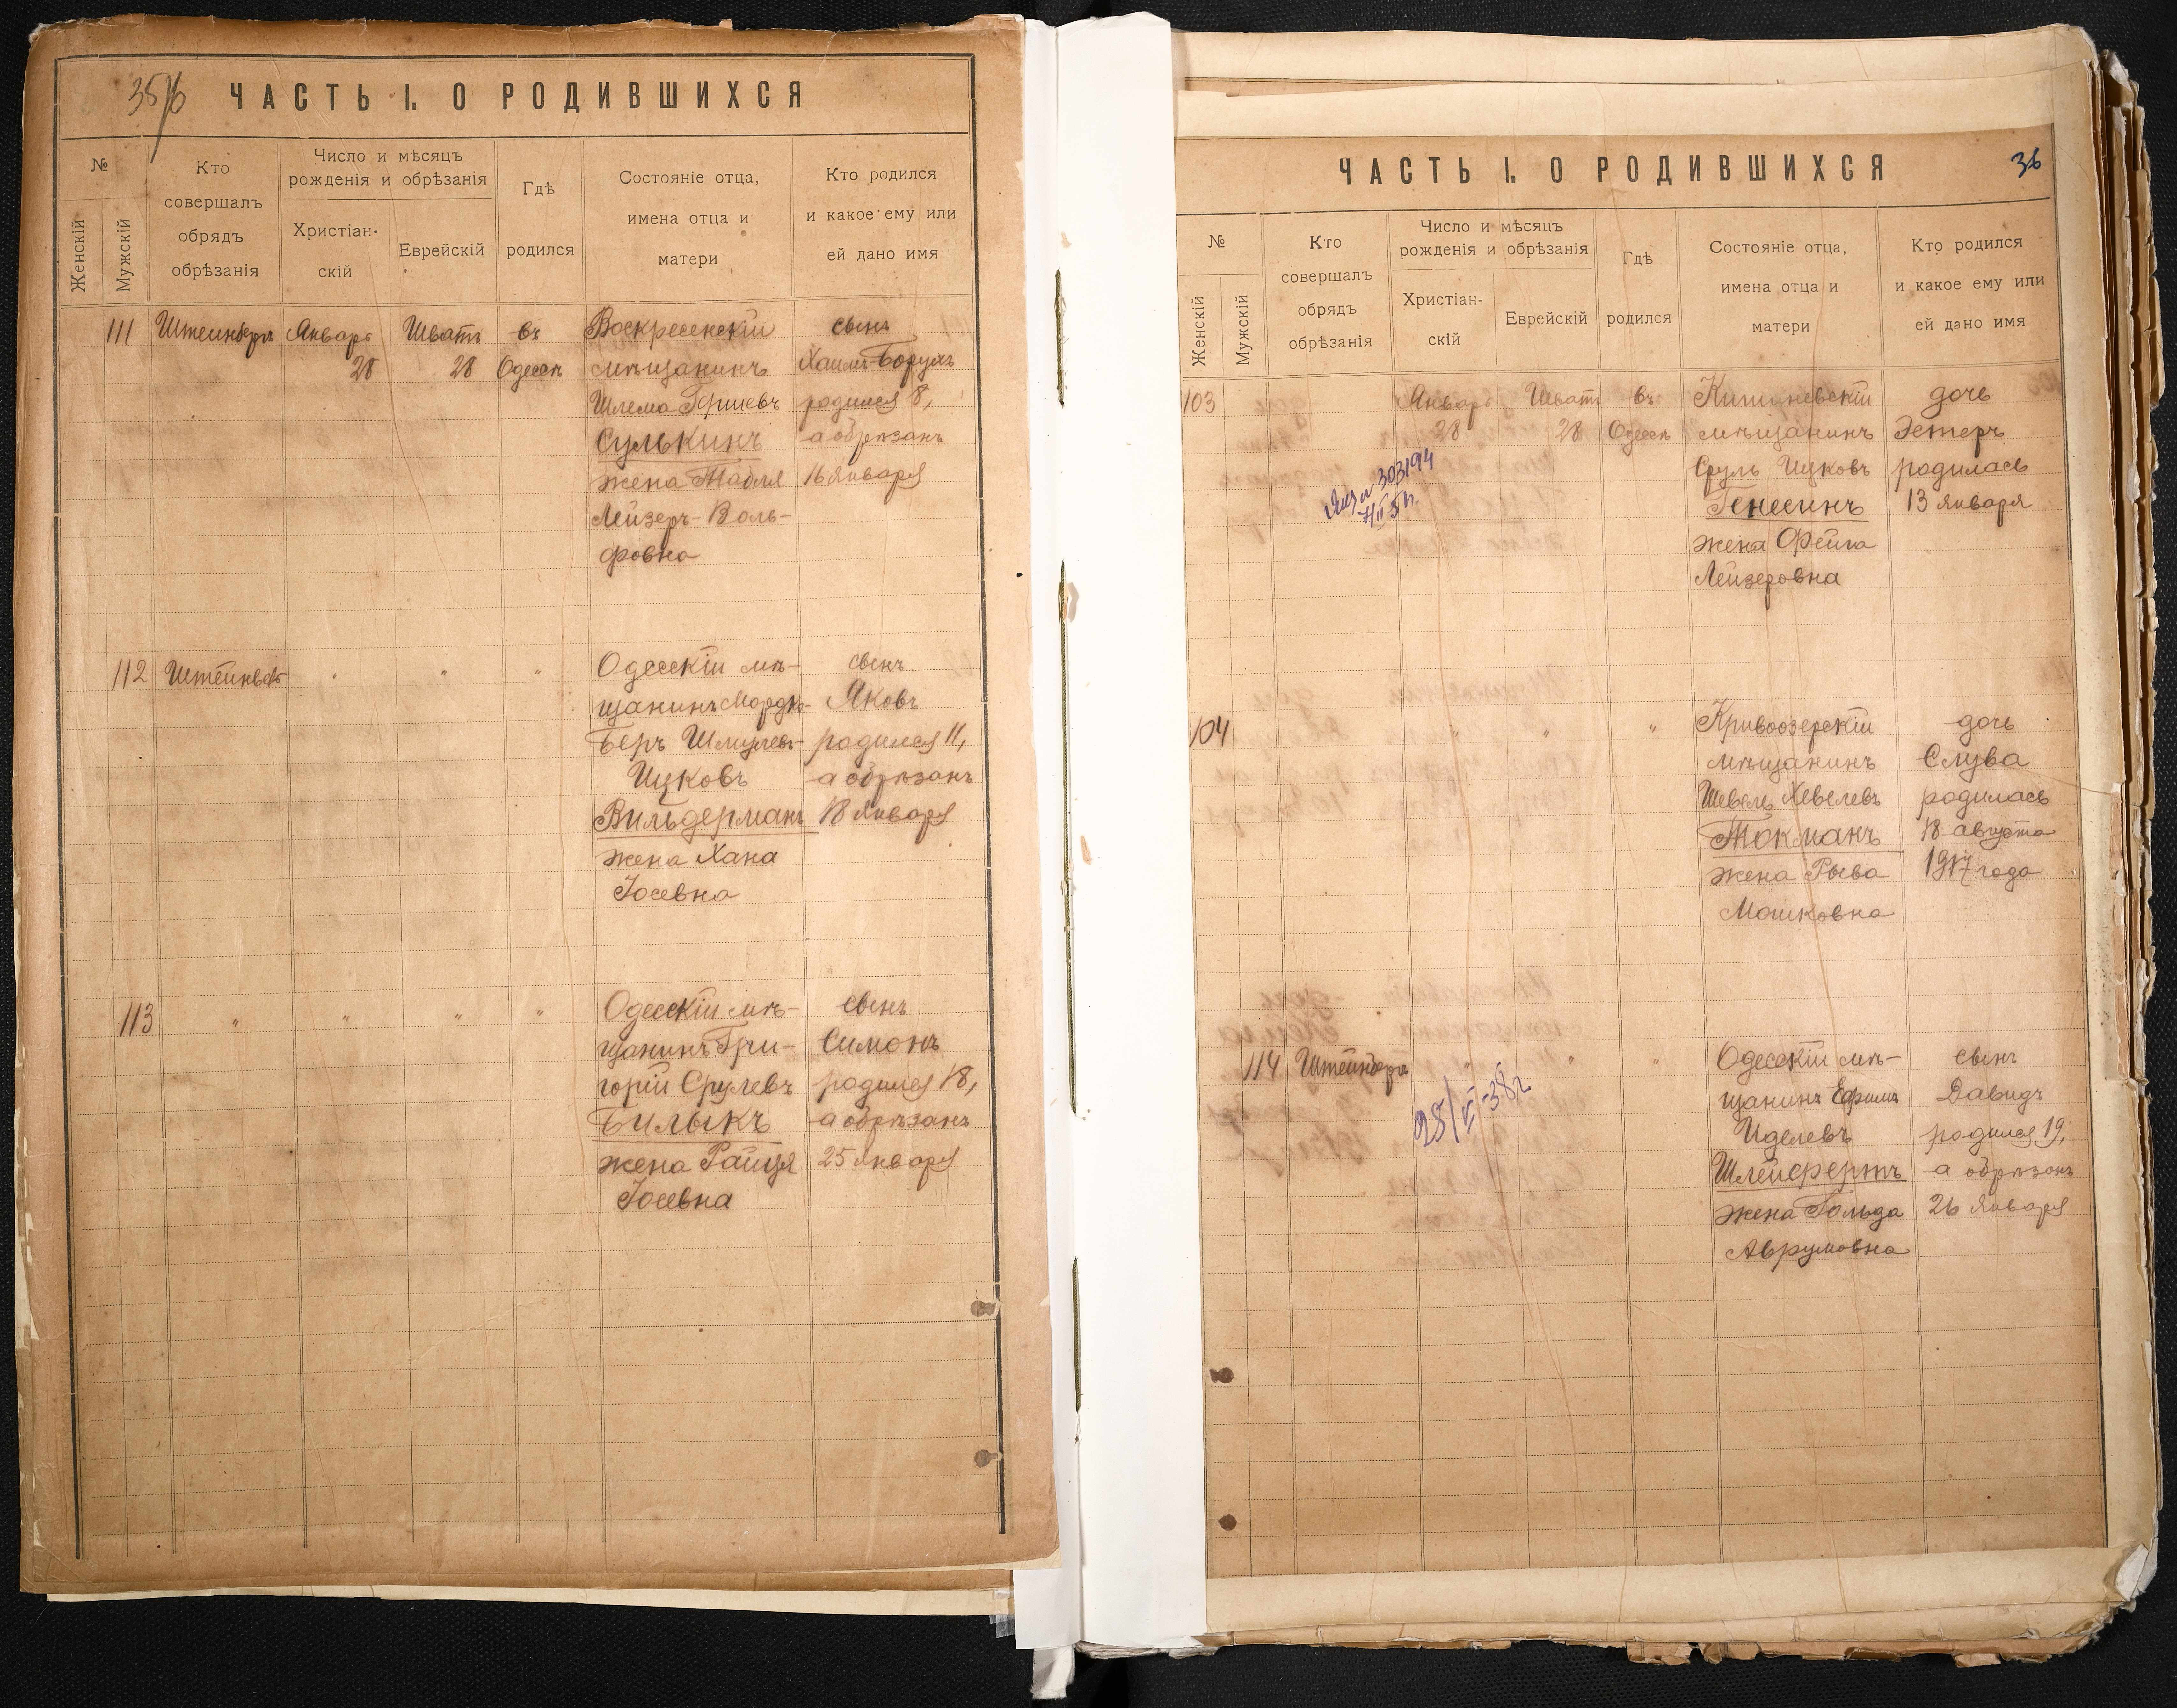 35/б
ЧАСТЬ I. О РОДИВШИХСЯ
№
Женскій
Мужскій
Кто
совершалъ
обрядъ
обрѣзанія
Число и мѣсяцъ
рожденія и обрѣзанія
Христіан-
скій
Еврейскій
Гдѣ
родился
Состояніе отца,
имена отца и
матери
Кто родился
и какое ему или
ей дано имя
111 Штейнбергъ Январь Шватъ въ Воскресенскій сынъ
28 28 Одессѣ мѣщанинъ Хаимъ-Борухъ
Шлема Гершевъ родился 8,
Сулькинъ а обрѣзанъ
жена Табля 16 января
Лейзеръ-Воль-
фовна
112 " " " Одесскій мѣ- сынъ
щанинъ Мордко- Яковъ
Беръ Шмулевъ- родился 11,
Ицковъ а обрѣзанъ
Вильдерманъ 18 января
жена Хана
Іосевна
113 " " " " Одесскій мѣ- сынъ
щанинъ Гри- Симонъ
горій Срулевъ родился 18,
Билыкъ а обрѣзанъ
жена Райця 25 января
Іосевна
36
ЧАСТЬ I. О РОДИВШИХСЯ
№
Женскій
Мужскій
Кто
совершалъ
обрядъ
обрѣзанія
Число и мѣсяцъ
рожденія и обрѣзанія
Христіан-
скій
Еврейскій
Гдѣ
родился
Состояніе отца,
имена отца и
матери
Кто родился
и какое ему или
ей дано имя
103 Январь Шватъ въ Кишиневскій дочь
28 28 Одессѣ мѣщанинъ Эстеръ
Сруль Ицковъ родилась
Генесинъ 13 января
жена Фейга
Лейзеровна
303194
104 " " " Кривоозерскій дочь
мѣщанинъ Слува
Шевель Хевелевъ родилась
Токманъ 18 августа
жена Рыва 1917 года
Мошковна
114 Штейнбергъ " " " Одесскій мѣ- сынъ
щанинъ Ефимъ Давидъ
Иделевъ родился 19,
Шлейфертъ а обрѣзанъ
жена Гольда 26 января
Аврумовна
25/VI-38г